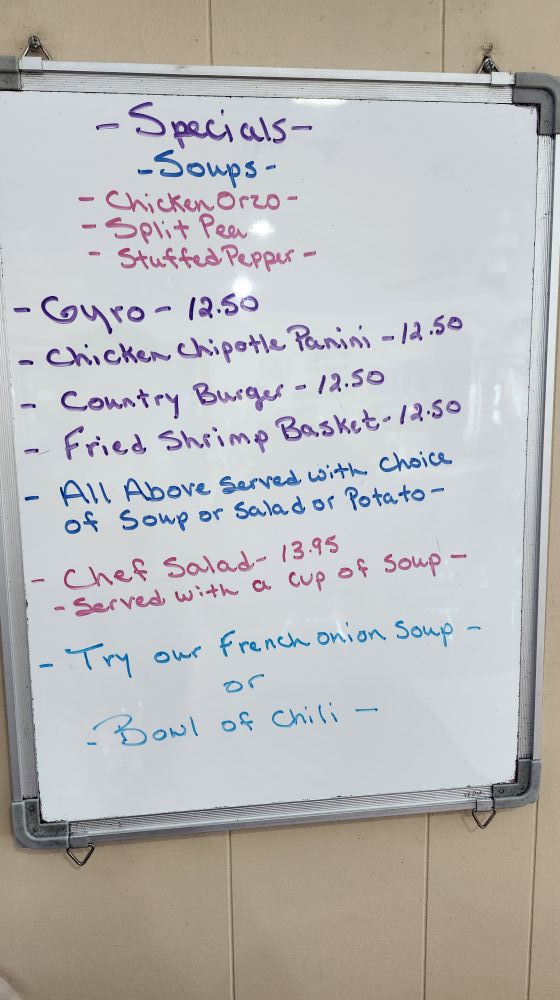 - Specials -
- Soups -
- Chicken Orzo -
- Split Pea
- Stuffed Pepper -
- Gyro - 12.50
- Chicken Chipotle Panini - 12.50
- Country Burger - 12.50
- Fried Shrimp Basket - 12.50
- All Above Served with Choice
of Soup or Salad or Potato -
- Chef Salad - 13.95
- Served with a cup of Soup -
- Try our French onion Soup -
or
- Bowl of Chili -